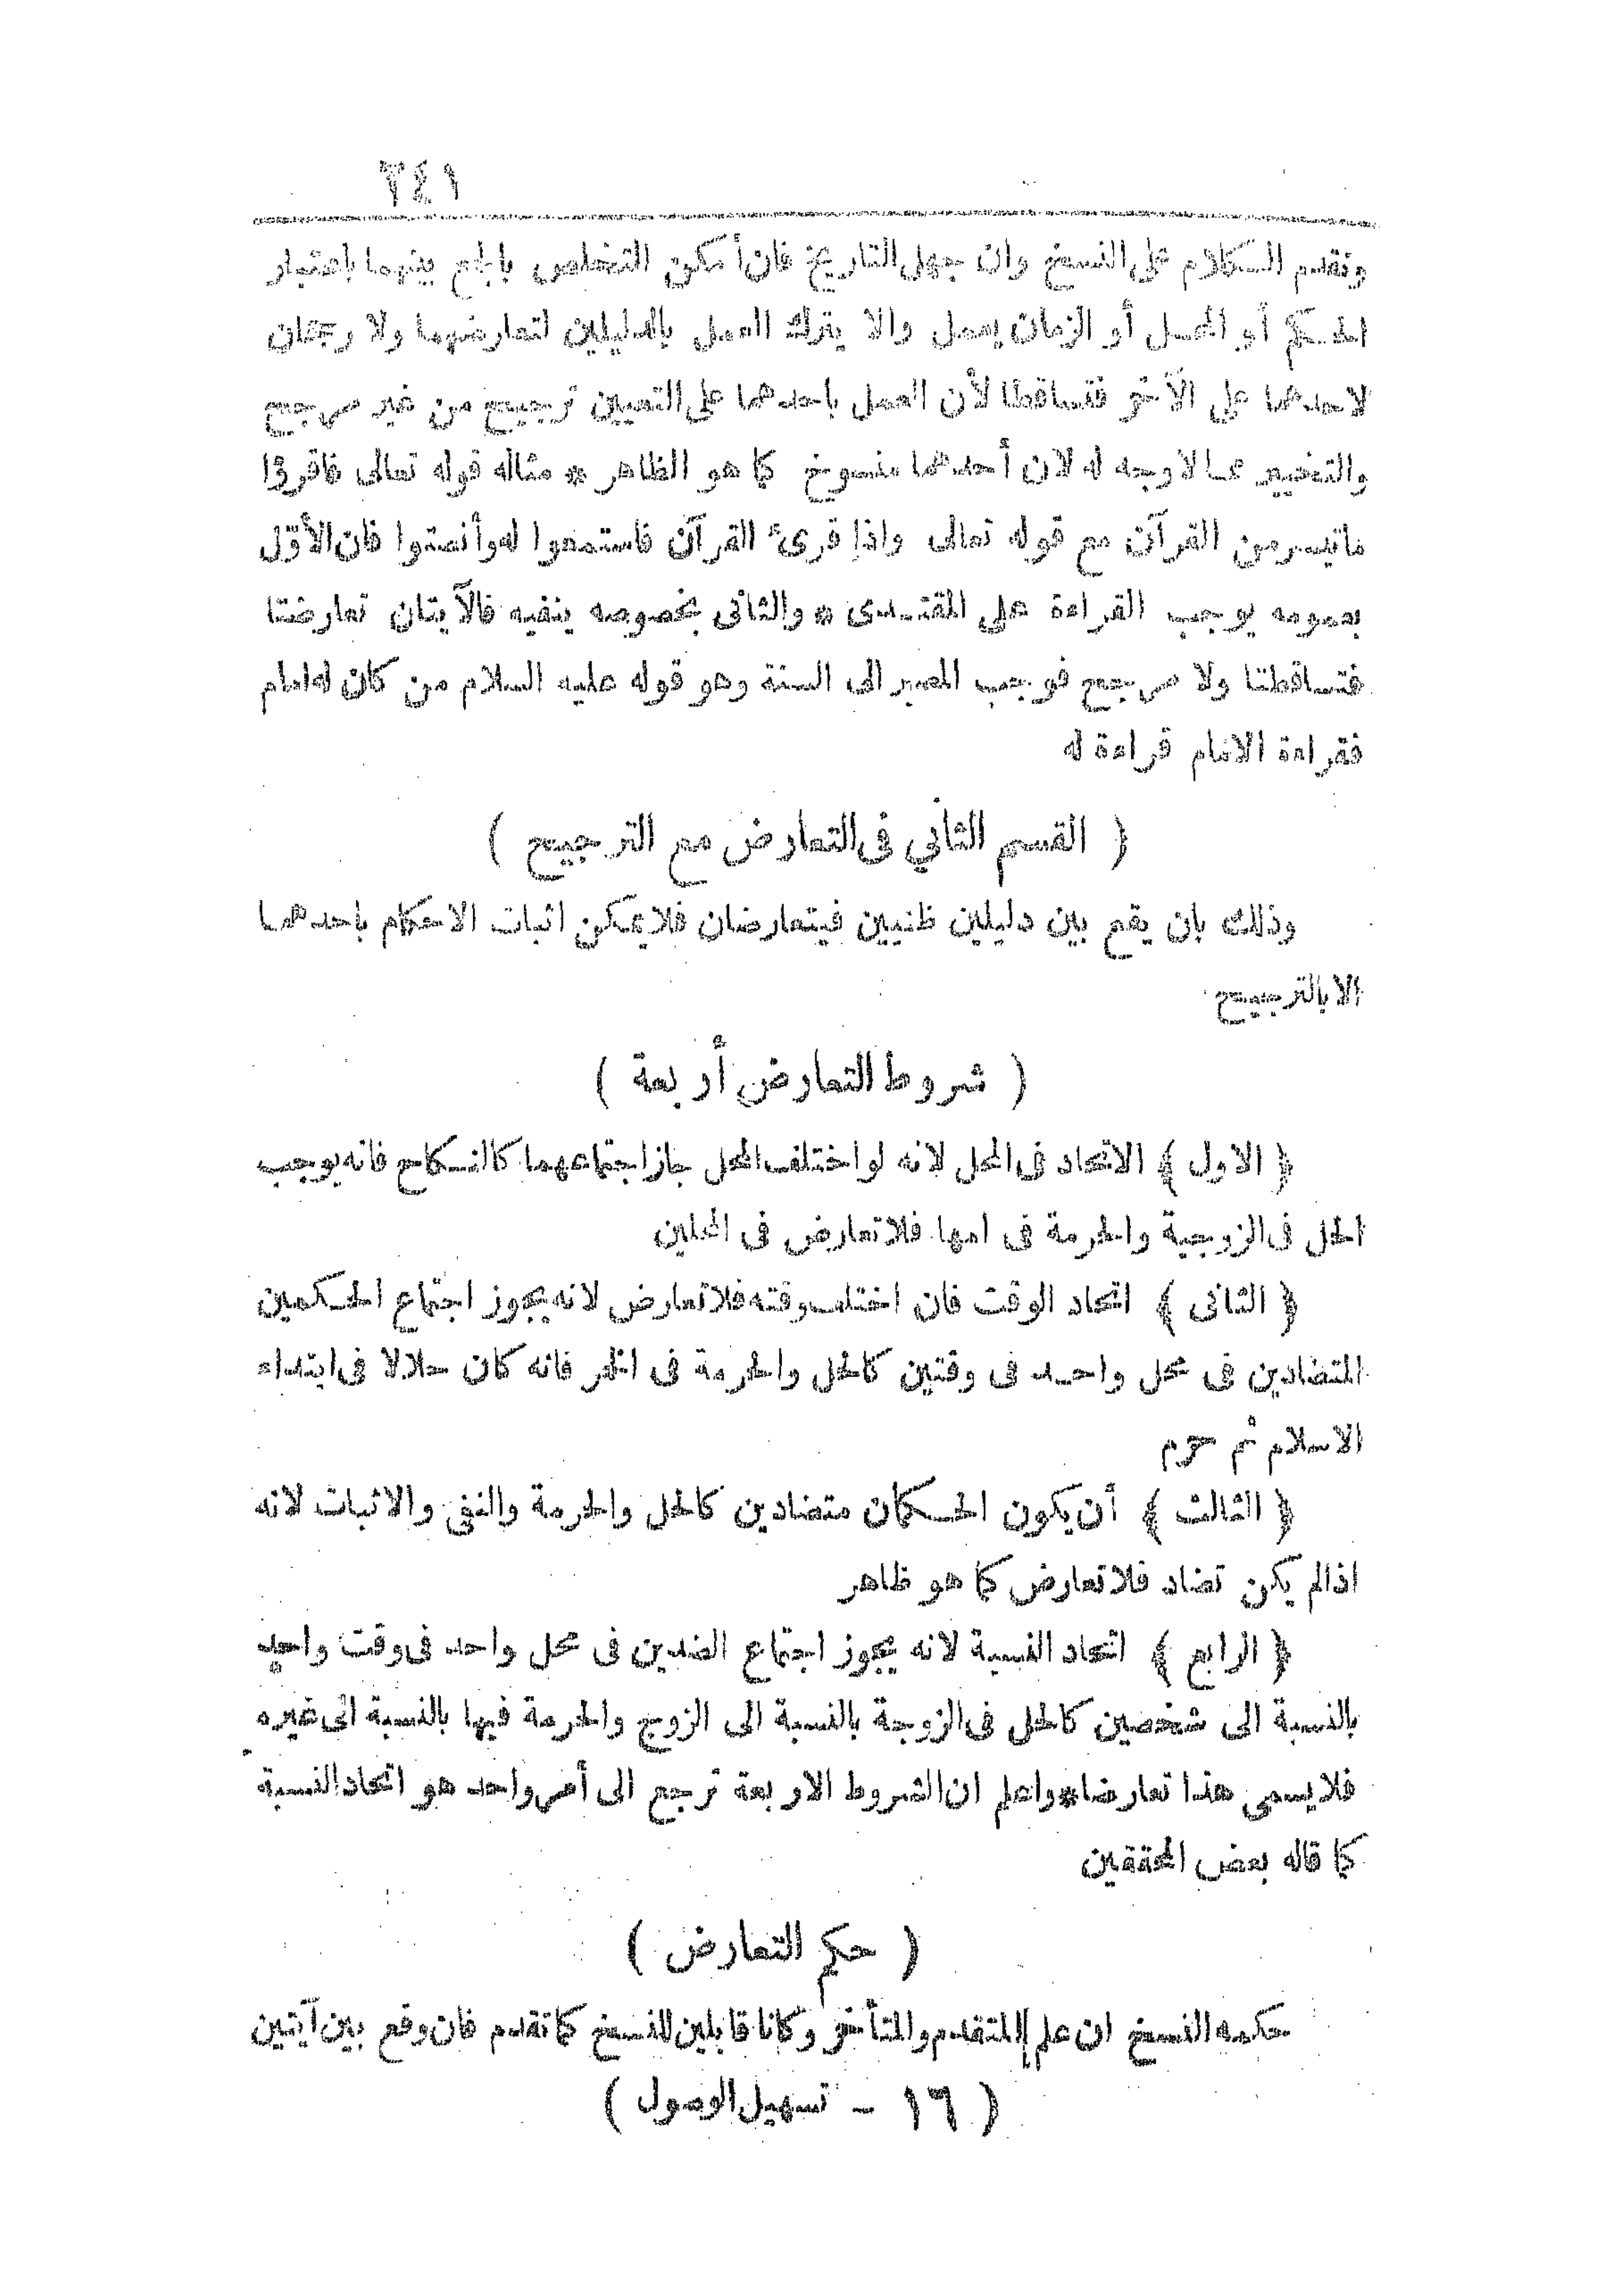 ٢٤١
وتقدم الكلام على النسخ وان جهل التاريخ فان أمكن التخلص بالجمع بينهما باعتبار
الحكم أو المحل أو الزمان يعمل والا يترك العمل بالدليلين لتعارضهما ولا رجحان
لاحدهما على الآخر فتساقطا لأن العمل باحدهما على التعيين ترجيح من غير مرجح
والتخيير مما لا وجه له لان أحدهما منسوخ كما هو الظاهر * مثاله قوله تعالى فاقرؤا
ماتيسر من القرآن مع قوله تعالى واذا قرئ القرآن فاستمعوا له وأنصتوا فان الأول
بعمومه يوجب القراءة على المقتدى * والثانى بخصوصه ينفيه فالآيتان تعارضتا
فتساقطتا ولا مرجح فوجب المصير الى السنة وهو قوله عليه السلام من كان له امام
فقراءة الامام قراءة له
( القسم الثاني فى التعارض مع الترجيح )
وذلك بان يقع بين دليلين ظنيين فيتعارضان فلا يمكن اثبات الاحكام باحدهما
الا بالترجيح
( شروط التعارض أربعة )
﴿ الاول ﴾ الاتحاد فى المحل لانه لو اختلف المحل جاز اجتماعهما كالنكاح فانه يوجب
الحل فى الزوجية والحرمة فى امها فلا تعارض فى المحلين
﴿ الثانى ﴾ اتحاد الوقت فان اختلف وقته فلا تعارض لانه يجوز اجتماع الحكمين
المتضادين فى محل واحد فى وقتين كالحل والحرمة فى الخمر فانه كان حلالا فى ابتداء
الاسلام ثم حرم
﴿ الثالث ﴾ أن يكون الحكمان متضادين كالحل والحرمة والنفى والاثبات لانه
اذا لم يكن تضاد فلا تعارض كما هو ظاهر
﴿ الرابع ﴾ اتحاد النسبة لانه يجوز اجتماع الضدين فى محل واحد فى وقت واحد
بالنسبة الى شخصين كالحل فى الزوجة بالنسبة الى الزوج والحرمة فيها بالنسبة الى غيره
فلا يسمى هذا تعارضا * واعلم ان الشروط الاربعة ترجع الى أمر واحد هو اتحاد النسبة
كما قاله بعض المحققين
( حكم التعارض )
حكمه النسخ ان علم المتقدم والمتأخر وكانا قابلين للنسخ كما تقدم فان وقع بين آيتين
( ١٦ - تسهيل الوصول )